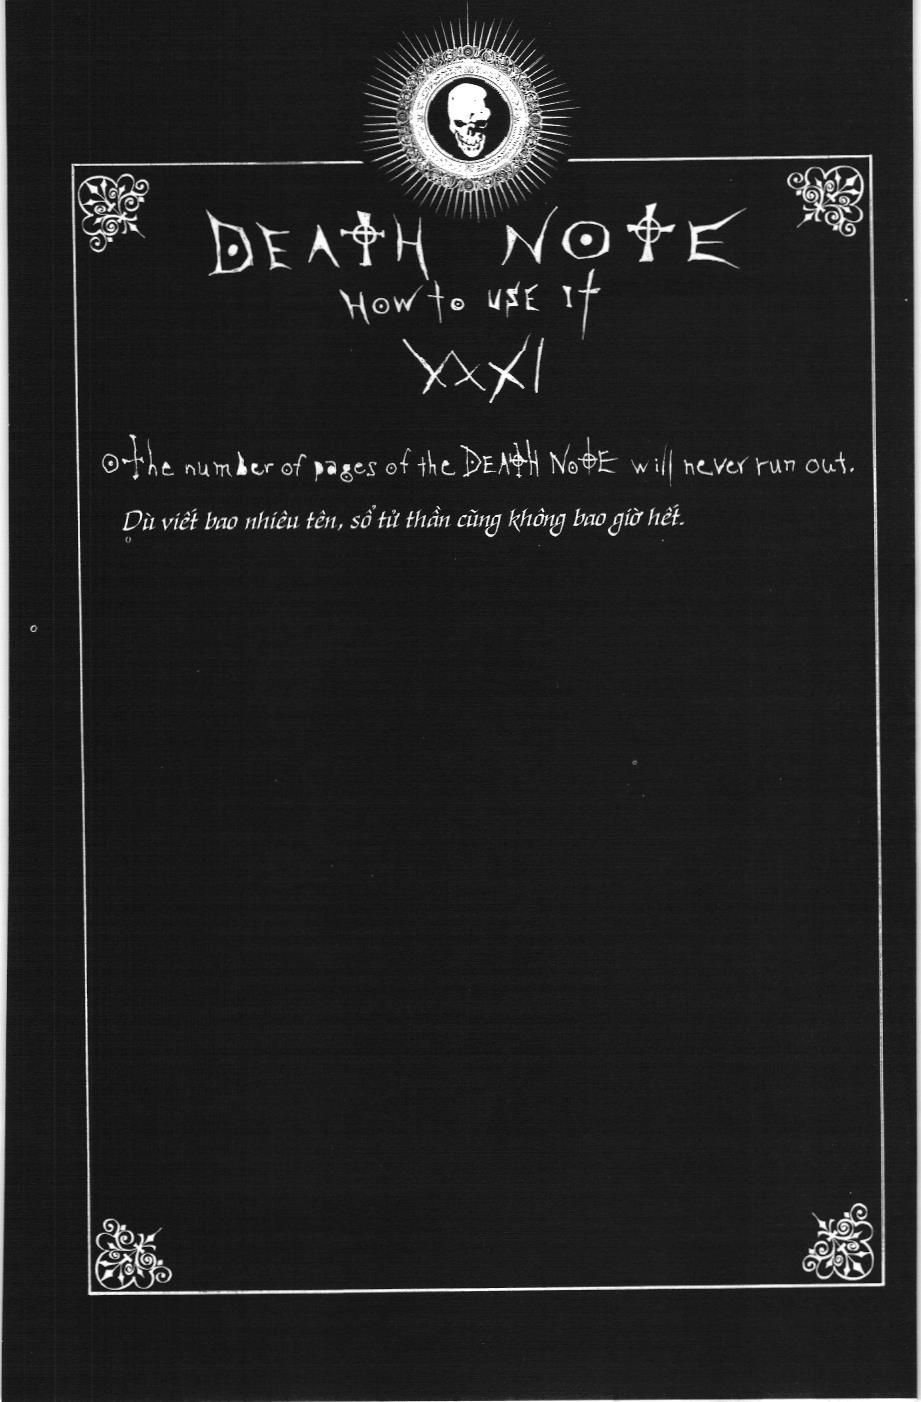 DEATH NOTE
HOW to USE It
XXXI
The number of pages of the DEATH NOTE will never run out.
Dù viết bao nhiêu tên, sổ tử thần cũng không bao giờ hết.